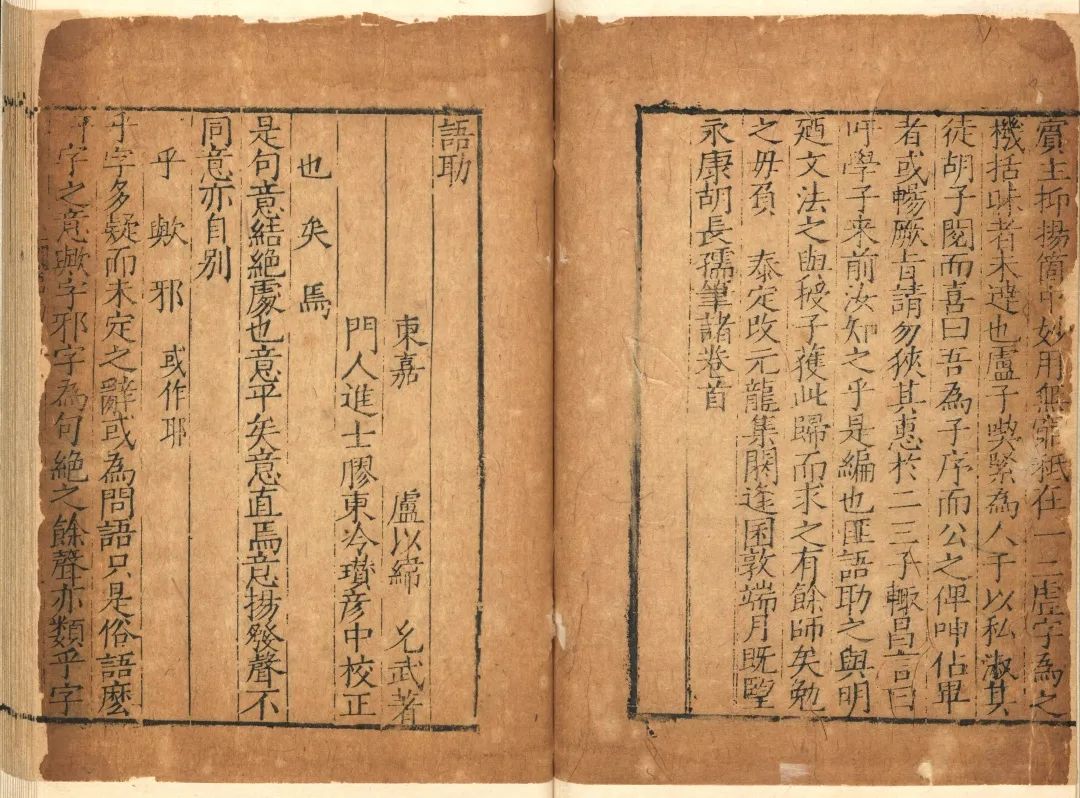 賓主抑揚箇中妙用無窮秪在一二虛字為之
機括昧者未達也盧子喫緊為人予以私淑其
徒胡子閱而喜曰吾為子序而公之俾呻佔畢
者或暢厥旨請勿狹其惠於二三子輙昌言曰
吁學子来前汝知之乎是編也匪語助之與明
廼文法之與授子獲此歸而求之有餘師矣勉
之毋負　泰定改元龍集閼逢困敦端月既朢
永康胡長孺筆諸卷首
語助
東嘉　盧以緯　允武著
門人進士膠東冷瓚彥中校正
也　矣　焉
是句意結絕處也意平矣意直焉意揚發聲不
同意亦自別
乎　歟　邪　或作耶
乎字多疑而未定之辭或為問語只是俗語麼
字之意歟字邪字為句絕之餘聲亦類乎字